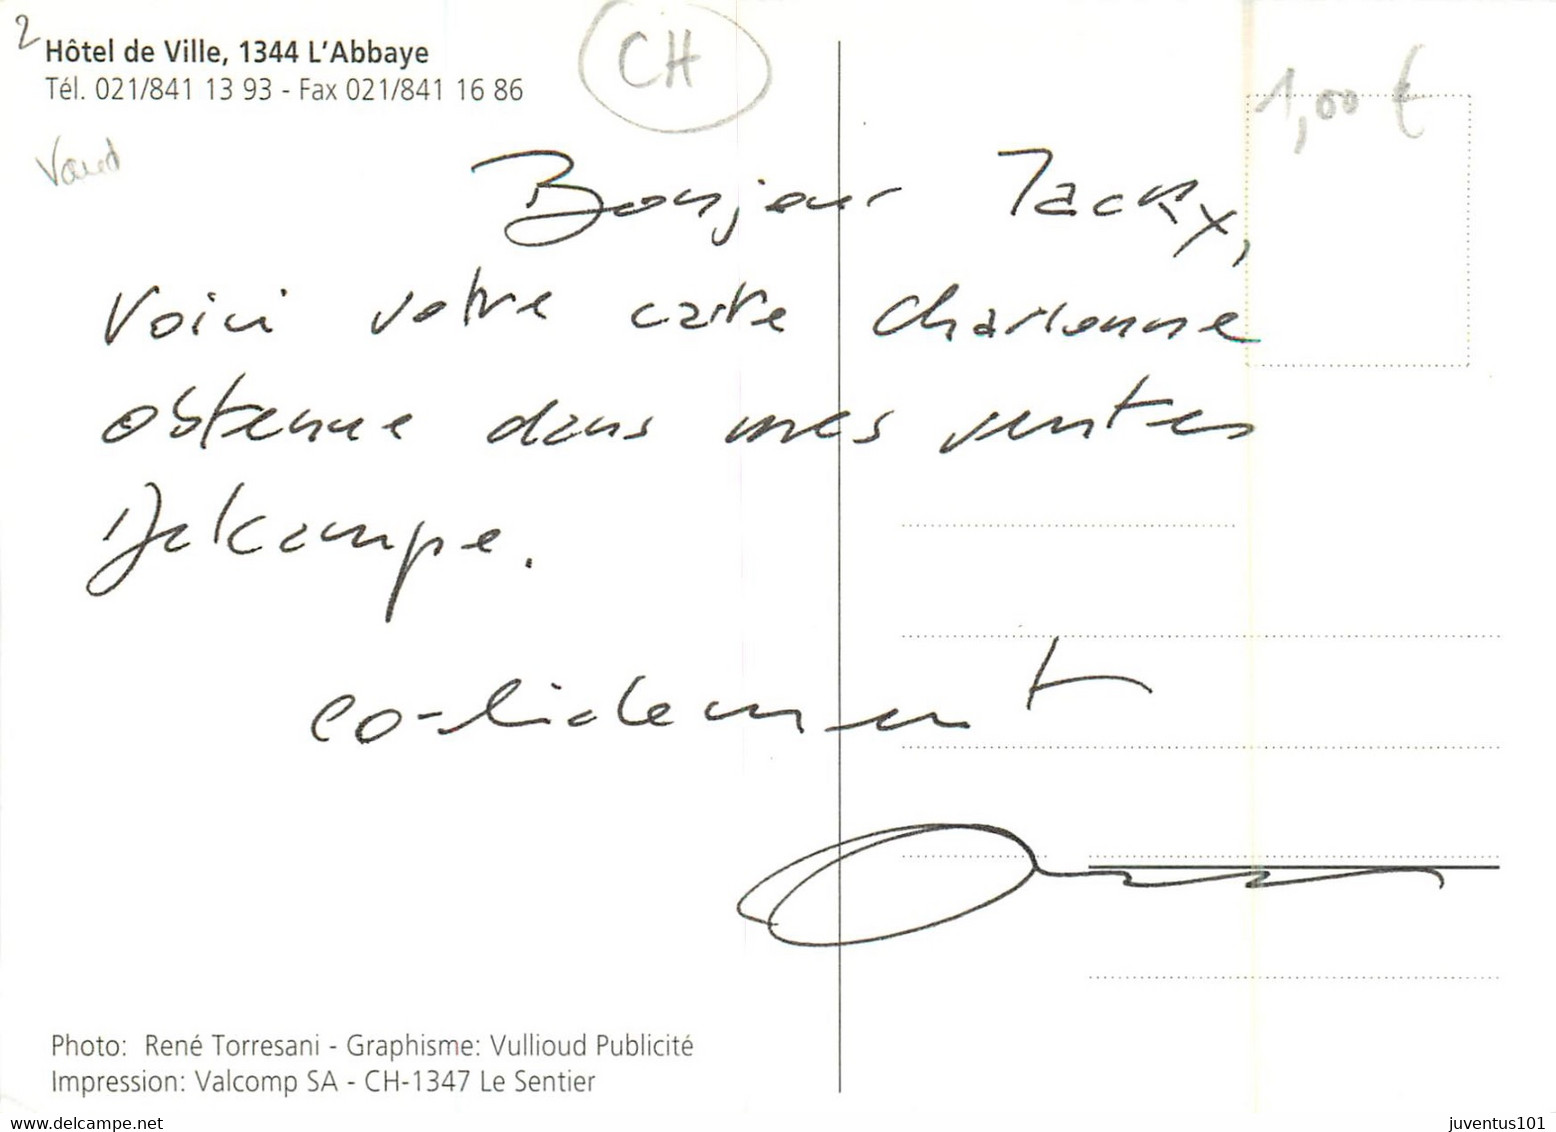 2
Hôtel de Ville, 1344 L'Abbaye
Tél. 021/841 13 93 - Fax 021/841 16 86
CH
1,00 €
Vaud
Bonjour Jacky,
Voici votre carte Charlonne
obtenue dans mes ventes
Delcampe.
Cordialement
Photo: René Torresani - Graphisme: Vullioud Publicité
Impression: Valcomp SA - CH-1347 Le Sentier
www.delcampe.net
juventus101